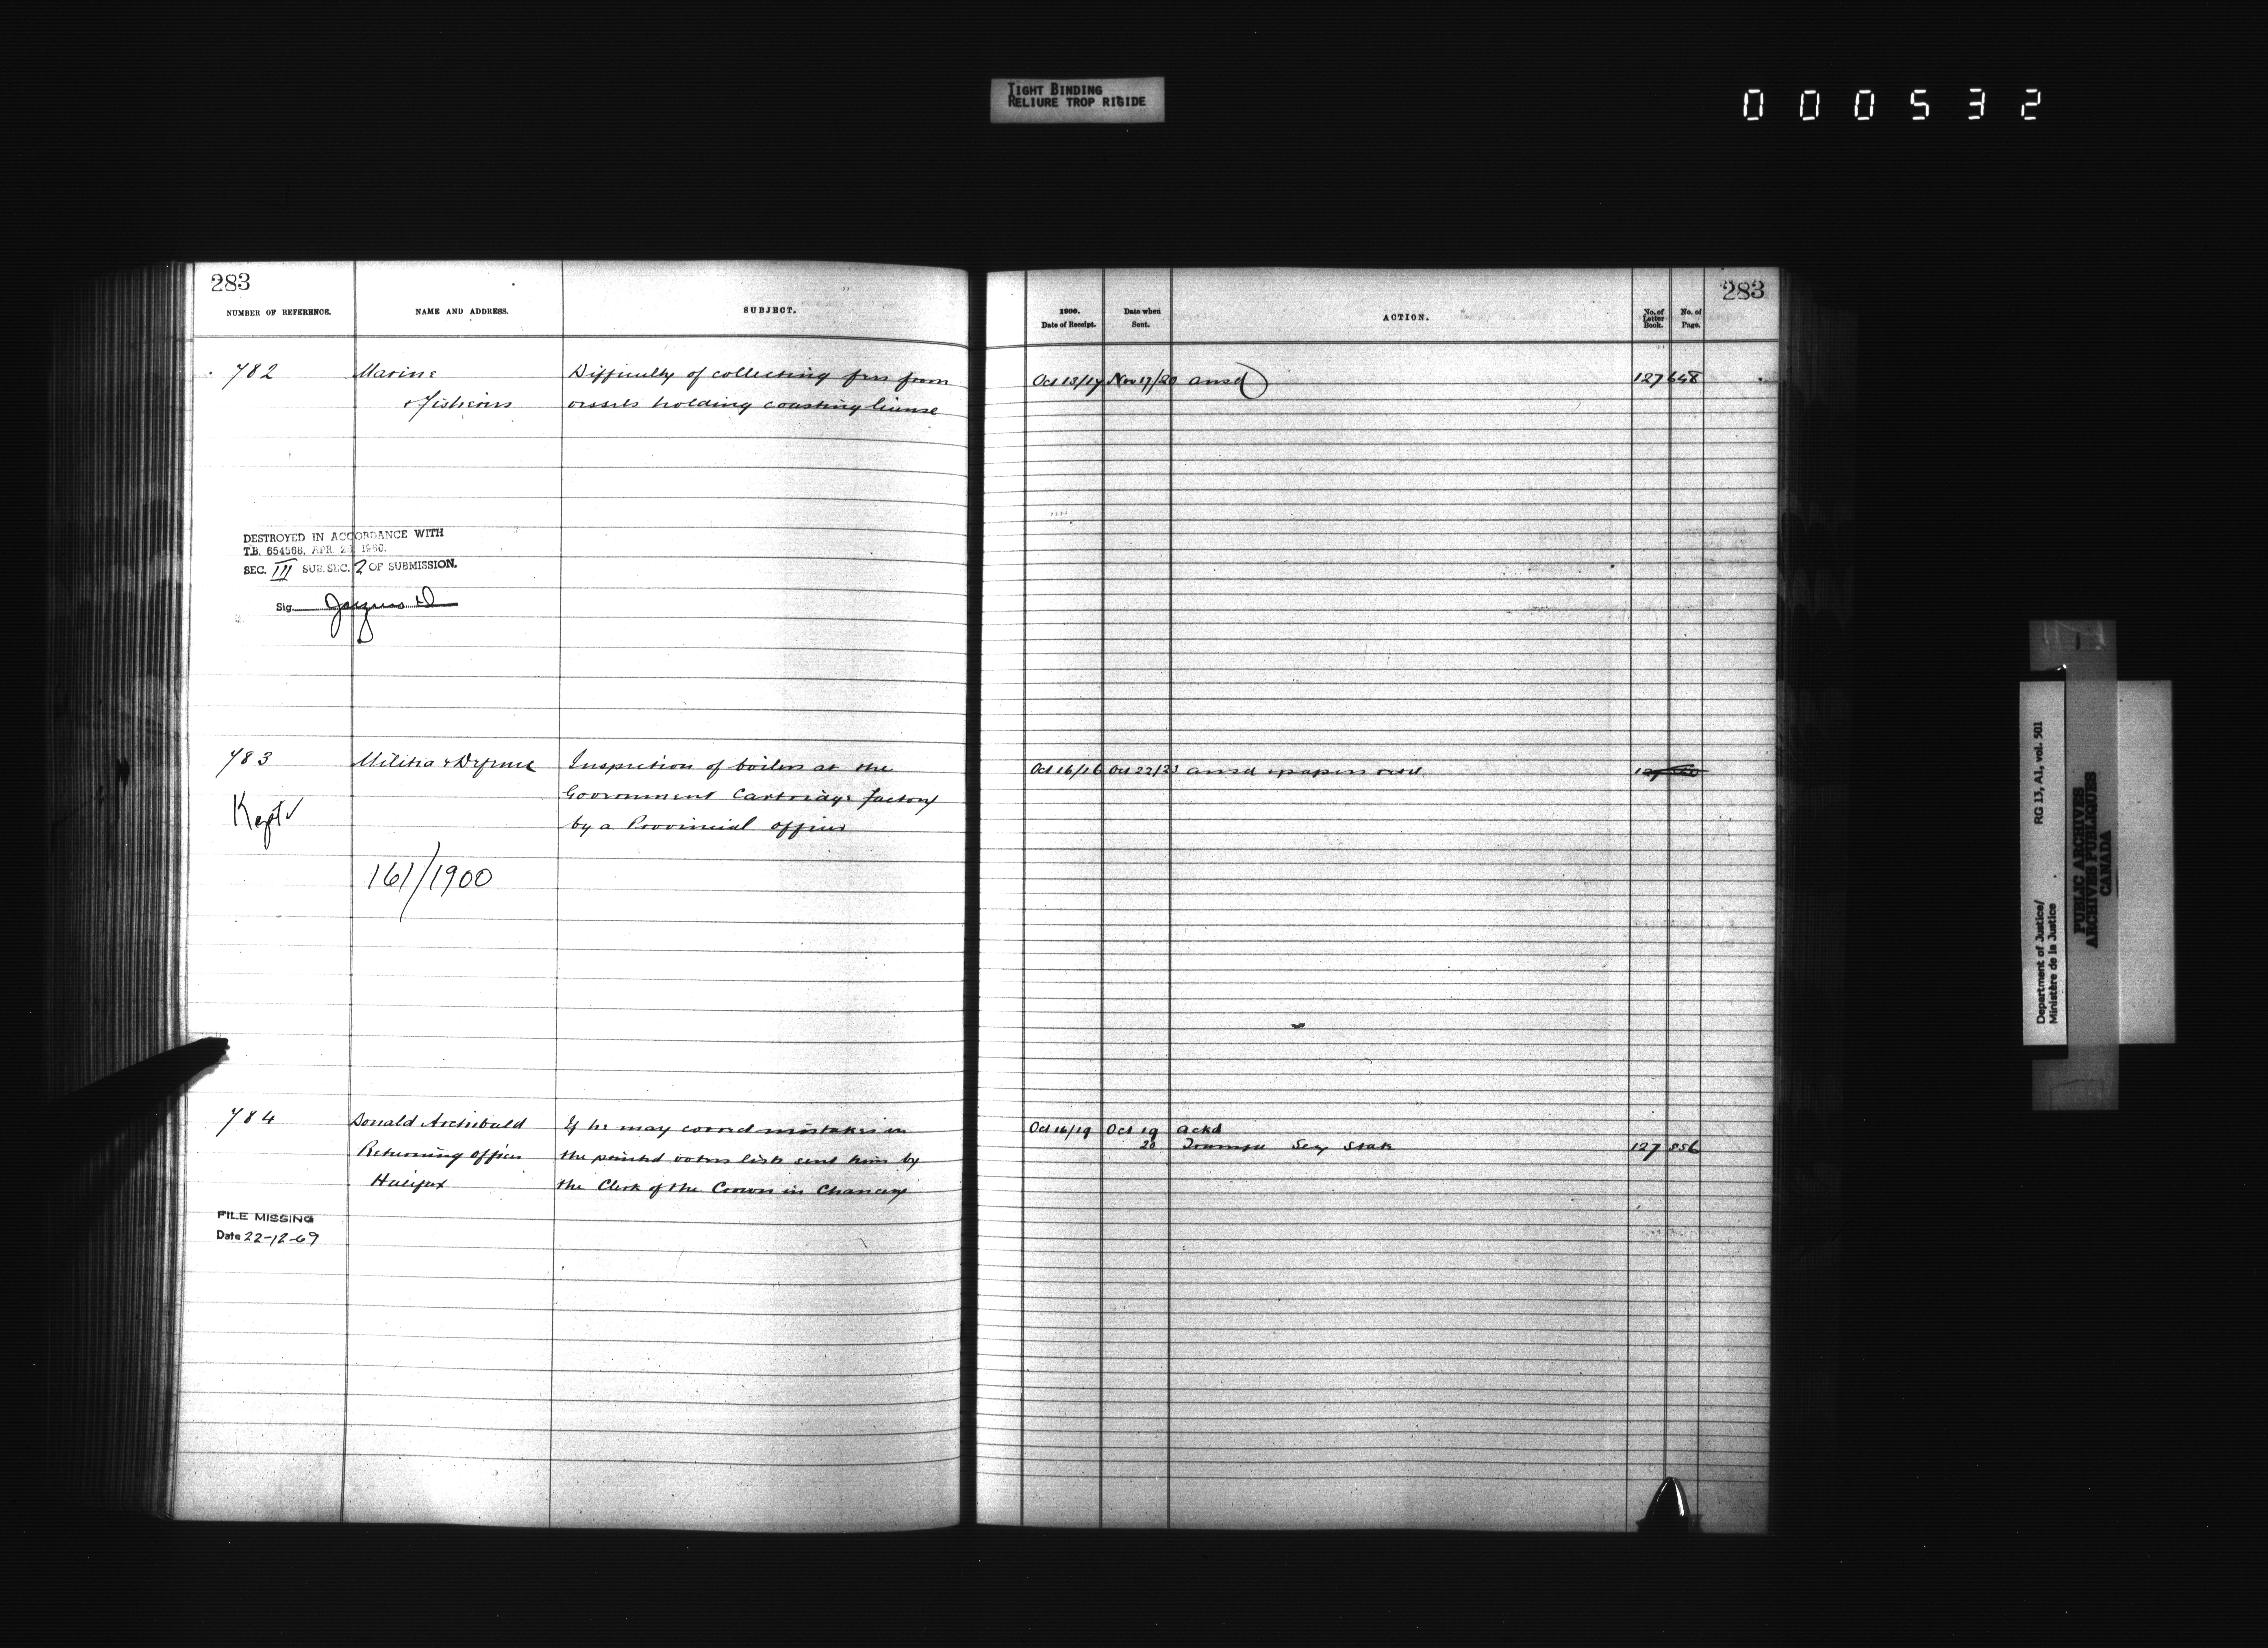 TIGHT BINDING
RELIURE TROP RIGIDE
000532
283
NUMBER OF REFERENCE.
NAME AND ADDRESS.
SUBJECT.
782
Marine
& Fisheries
Difficulty of collecting fees from
vessels holding coasting license
DESTROYED IN ACCORDANCE WITH
T.B. 654568, APR. 1960.
SEC. III SUB. SEC. 2 OF SUBMISSION.
Sig.
783
Militia & Defence
Inspection of boilers at the
Government Cartridge factory
by a Provincial officer
Kept ✓
161/1900
784
Donald Archibald
Returning officer
Halifax
If he may correct mistakes in
the printed voters lists sent him by
the Clerk of the Crown in Chancery
FILE MISSING
Date 22-12-69
283
1900.
Date of Receipt.
Date when
Sent.
ACTION.
No. of
Letter
Book.
No. of
Page.
Oct 13/17 Nov 17/20 ansd 127 648
Oct 16/16 Oct 22/23 ansd papers
Oct 16/19 Oct 19 ackd
20 Secy State 127 556
Department of Justice/
Ministère de la Justice
RG 13, A1, vol. 501
PUBLIC ARCHIVES
ARCHIVES PUBLIQUES
CANADA